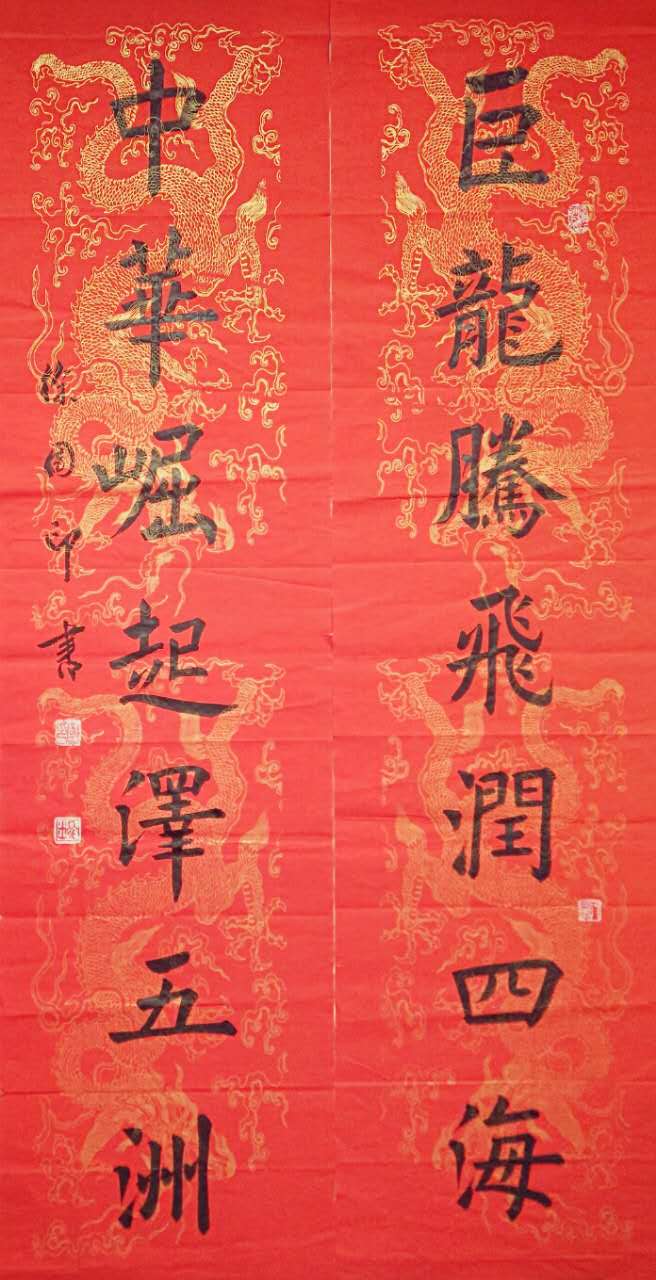 巨龍騰飛潤四海
中華崛起澤五洲
徐国印书